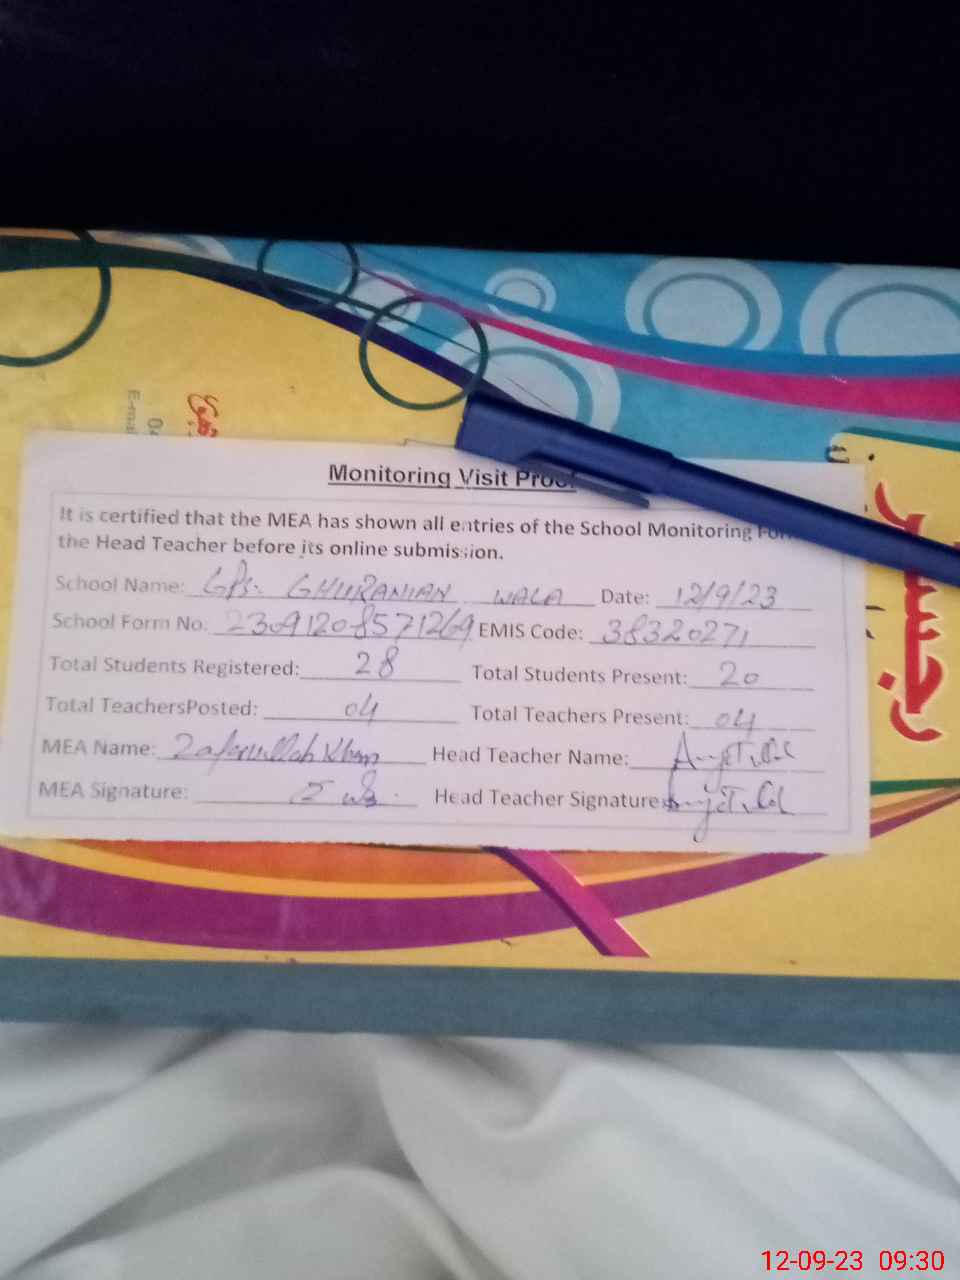 E-mai
04
رجسٹر
Monitoring Visit Proof
It is certified that the MEA has shown all entries of the School Monitoring For
the Head Teacher before its online submission.
School Name: GPS. GHURANIAN WALA Date: 12/9/23
School Form No. 23091208571269 EMIS Code: 38320271
Total Students Registered: 28 Total Students Present: 20
Total TeachersPosted: 04 Total Teachers Present: 04
MEA Name: Zafarullah Khan Head Teacher Name:
MEA Signature: Head Teacher Signature:
12-09-23 09:30